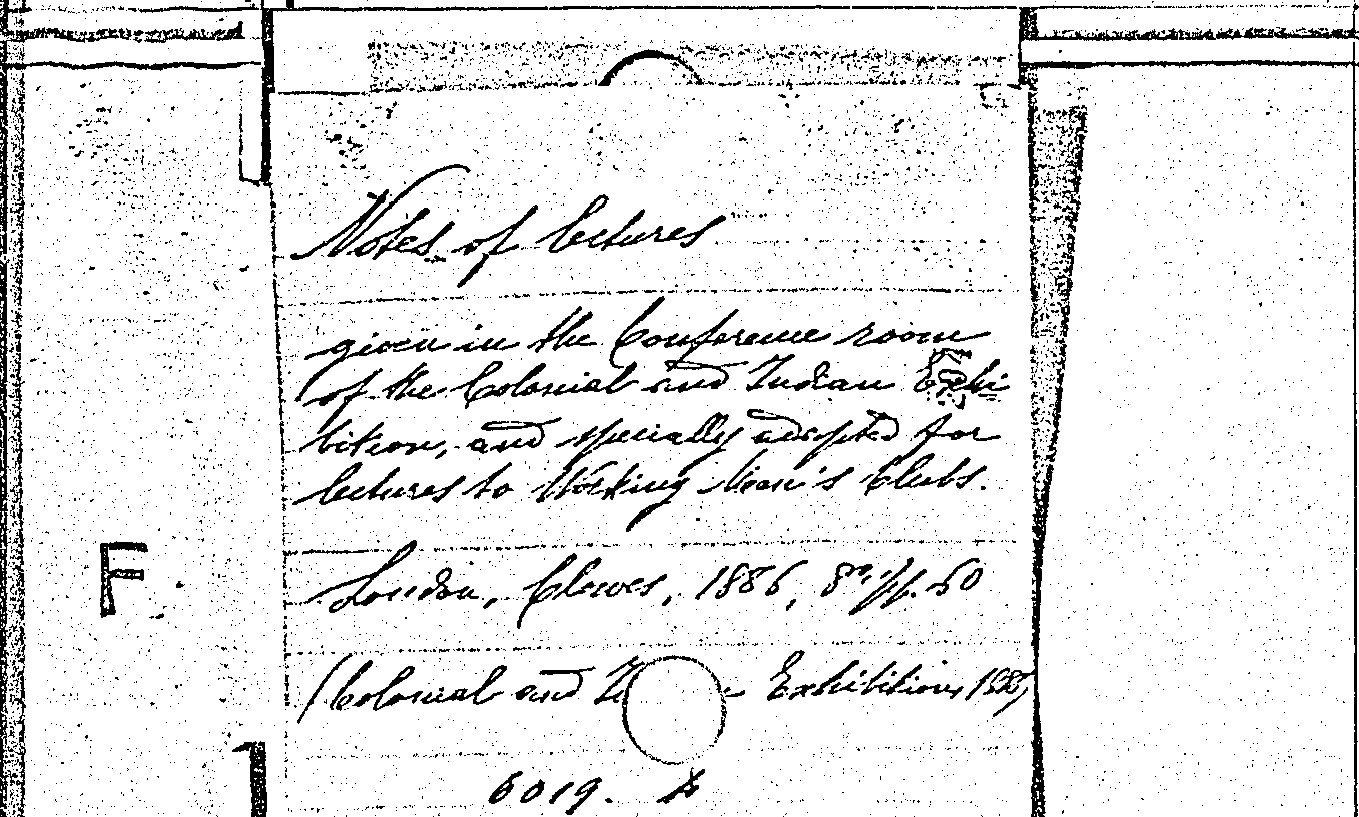 Notes of lectures
given in the Conference room
of the Colonial and Indian Exhi
bition, and specially adapted for
lectures to Working Men's Clubs.
F
London, Clowes, 1886, 8º, pp. 50
(Colonial and I Exhibition, 188
6019.